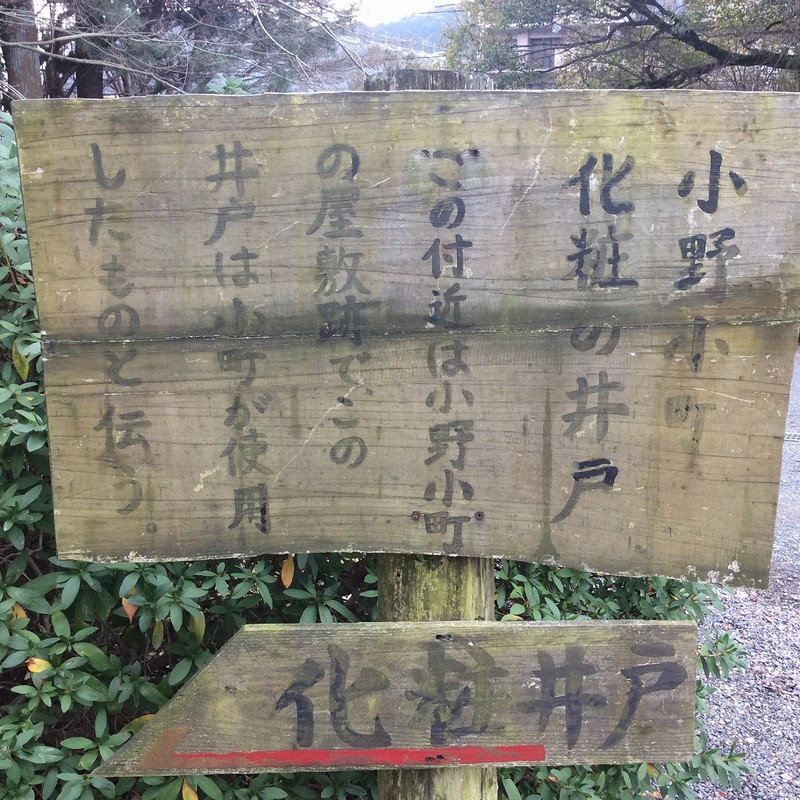 小野小町
化粧の井戸
この付近は小野小町
の屋敷跡でこの
井戸は小町が使用
したものと伝う。
化粧井戸